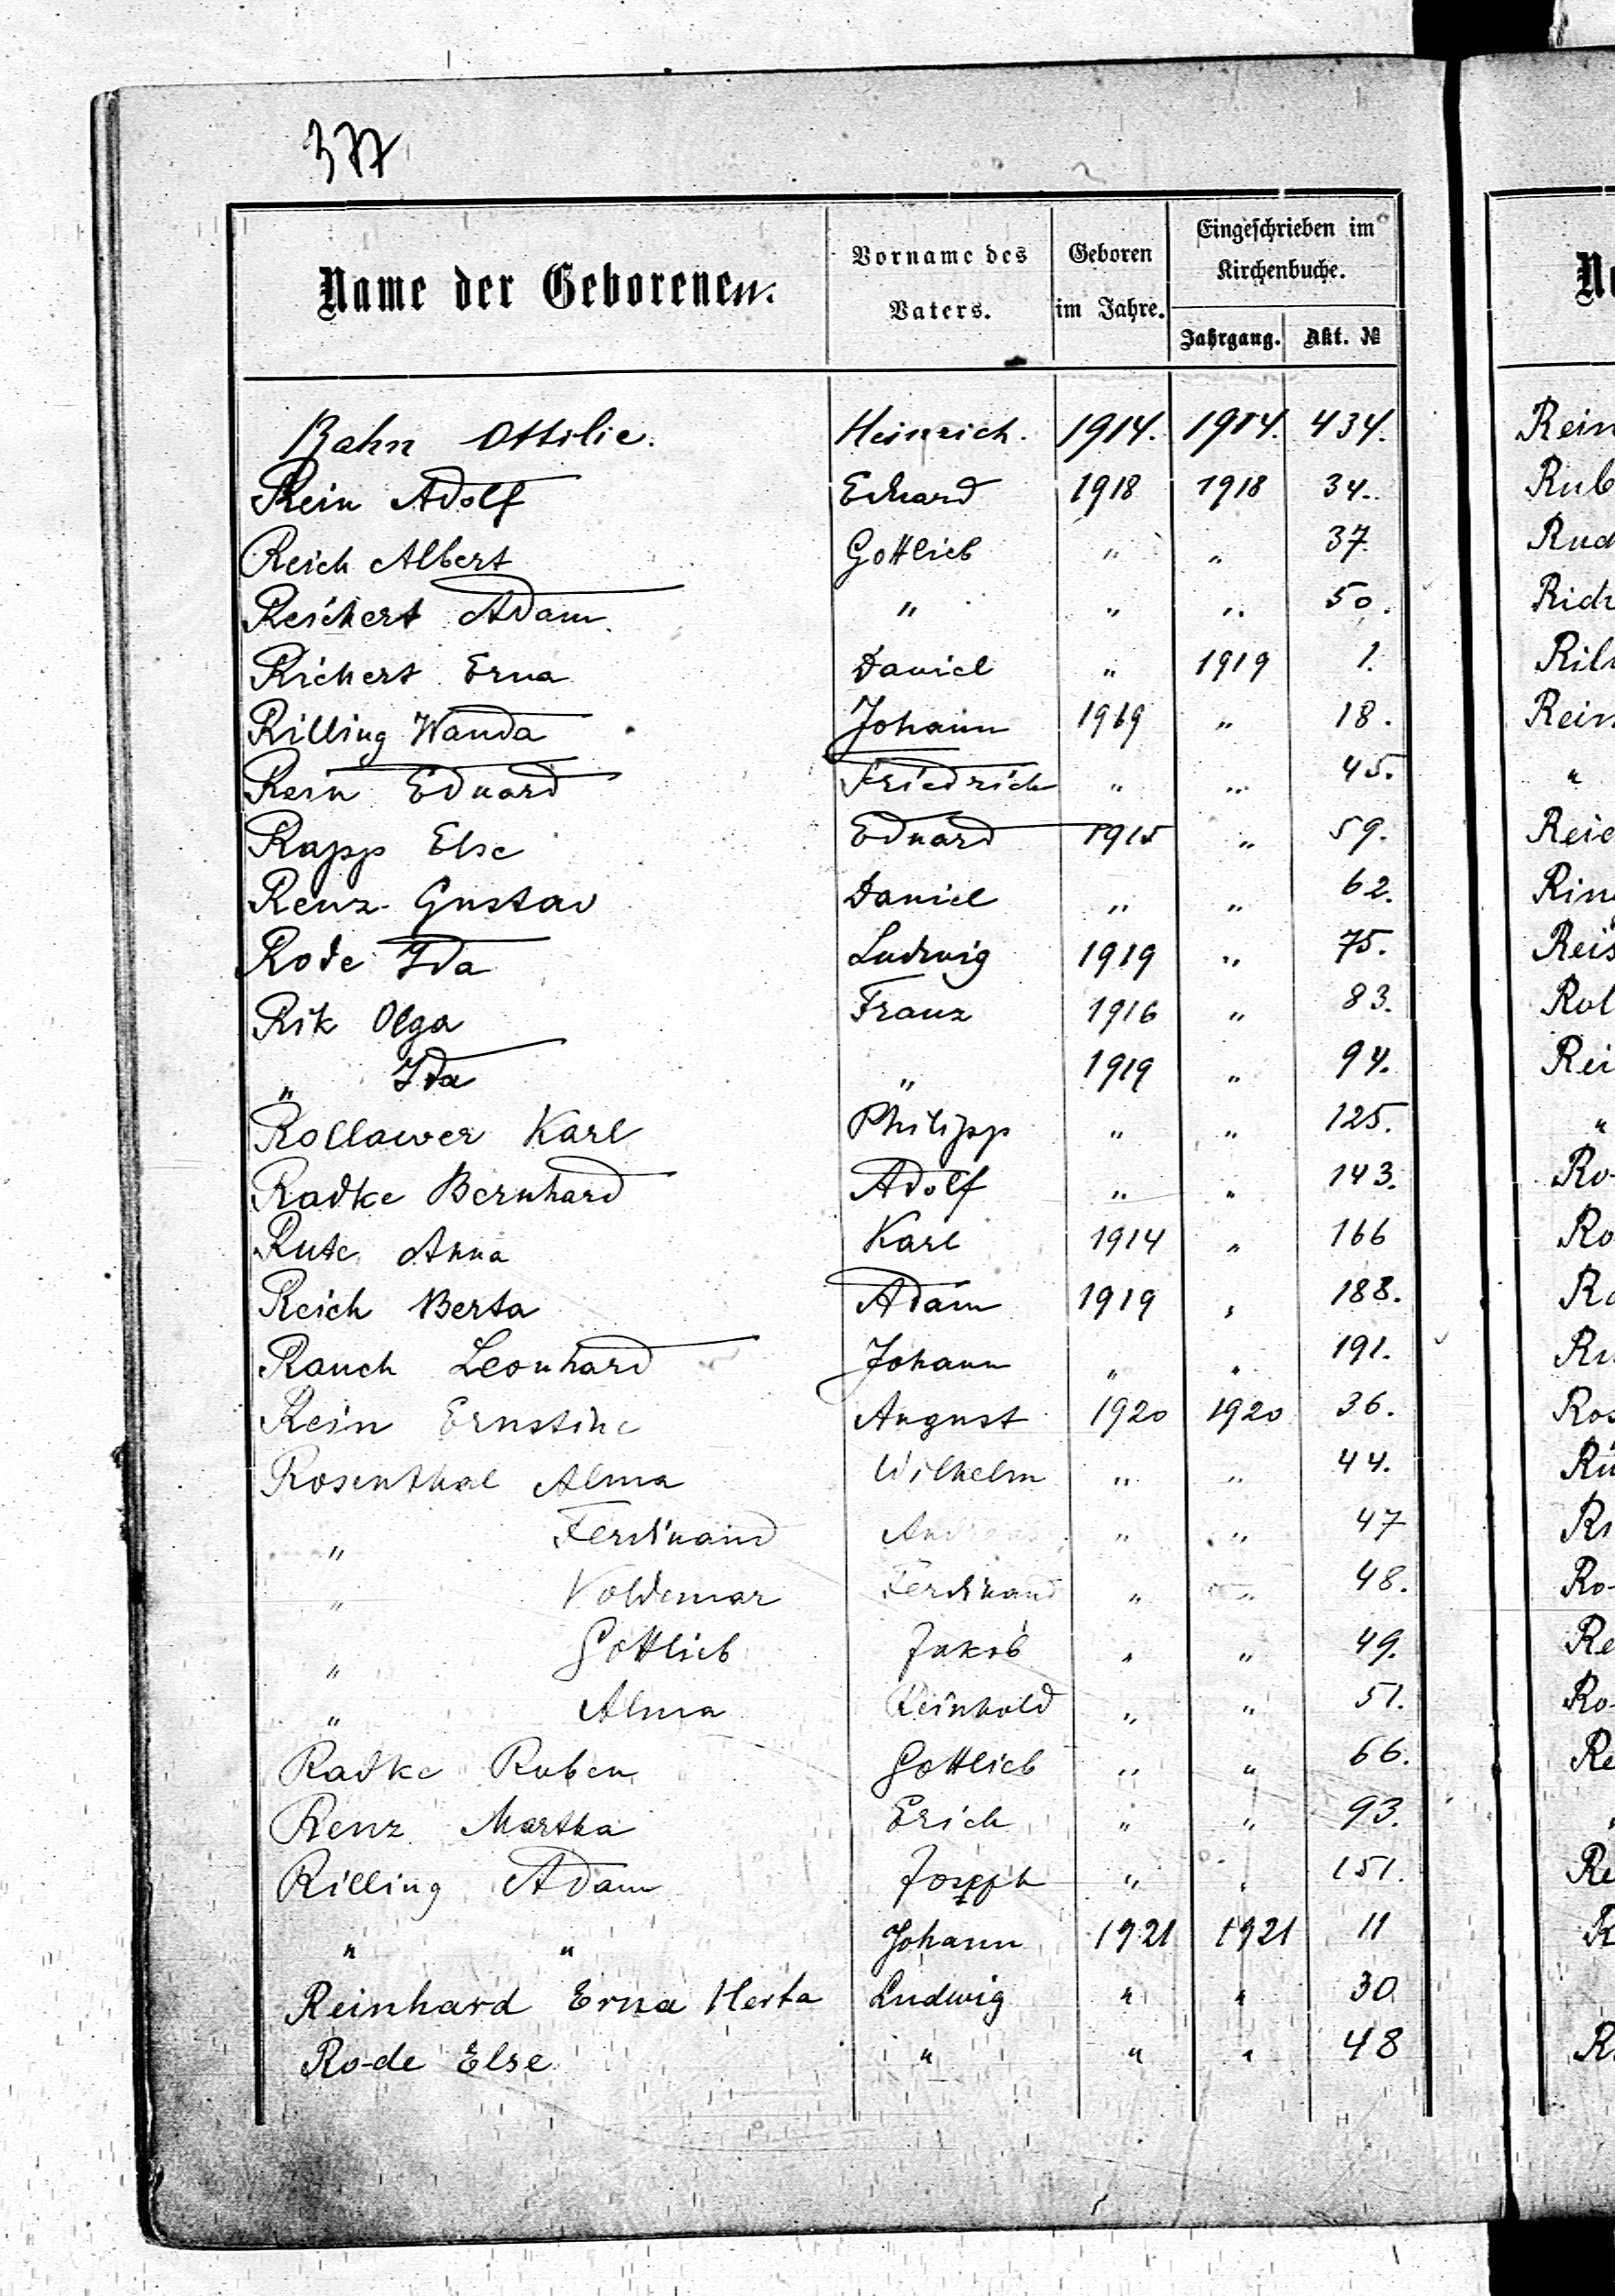 377
Name der Geborenen. Vorname des Vaters. Geboren im Jahre. Eingeschrieben im Kirchenbuche. Jahrgang. Akt. №
Rahn Ottilie. Heinrich. 1914. 1914. 434.
Rein Adolf Eduard 1918 1918 34.
Reich Albert Gottlieb " " 37.
Reichert Adam " " " 50.
Richert Erna Daniel " 1919 1.
Rilling Wanda Johann 1919 " 18.
Rein Eduard Friedrich " " 45.
Rapp Else Eduard 1915 " 59.
Renz Gustav Daniel " " 62.
Rode Ida Ludwig 1919 " 75.
Rik Olga Franz 1916 " 83.
" Ida " 1919 " 94.
Rollawer Karl Philipp " " 125.
Radke Bernhard Adolf " " 143.
Rute Anna Karl 1914 " 166
Reich Berta Adam 1919 " 188.
Rauch Leonhard Johann " " 191.
Rein Ernstine August 1920 1920 36.
Rosenthal Alma Wilhelm " " 44.
" Ferdinand Andreas " " 47
" Voldemar Ferdinand " " 48.
" Gottlieb Jakob " " 49.
" Alma Reinhold " " 51.
Radke Ruben Gottlieb " " 66.
Renz Martha Erich " " 93.
Rilling Adam Joseph " " 151.
" " Johann 1921 1921 11
Reinhard Erna Herta Ludwig " " 30
Ro-de Else " " " 48